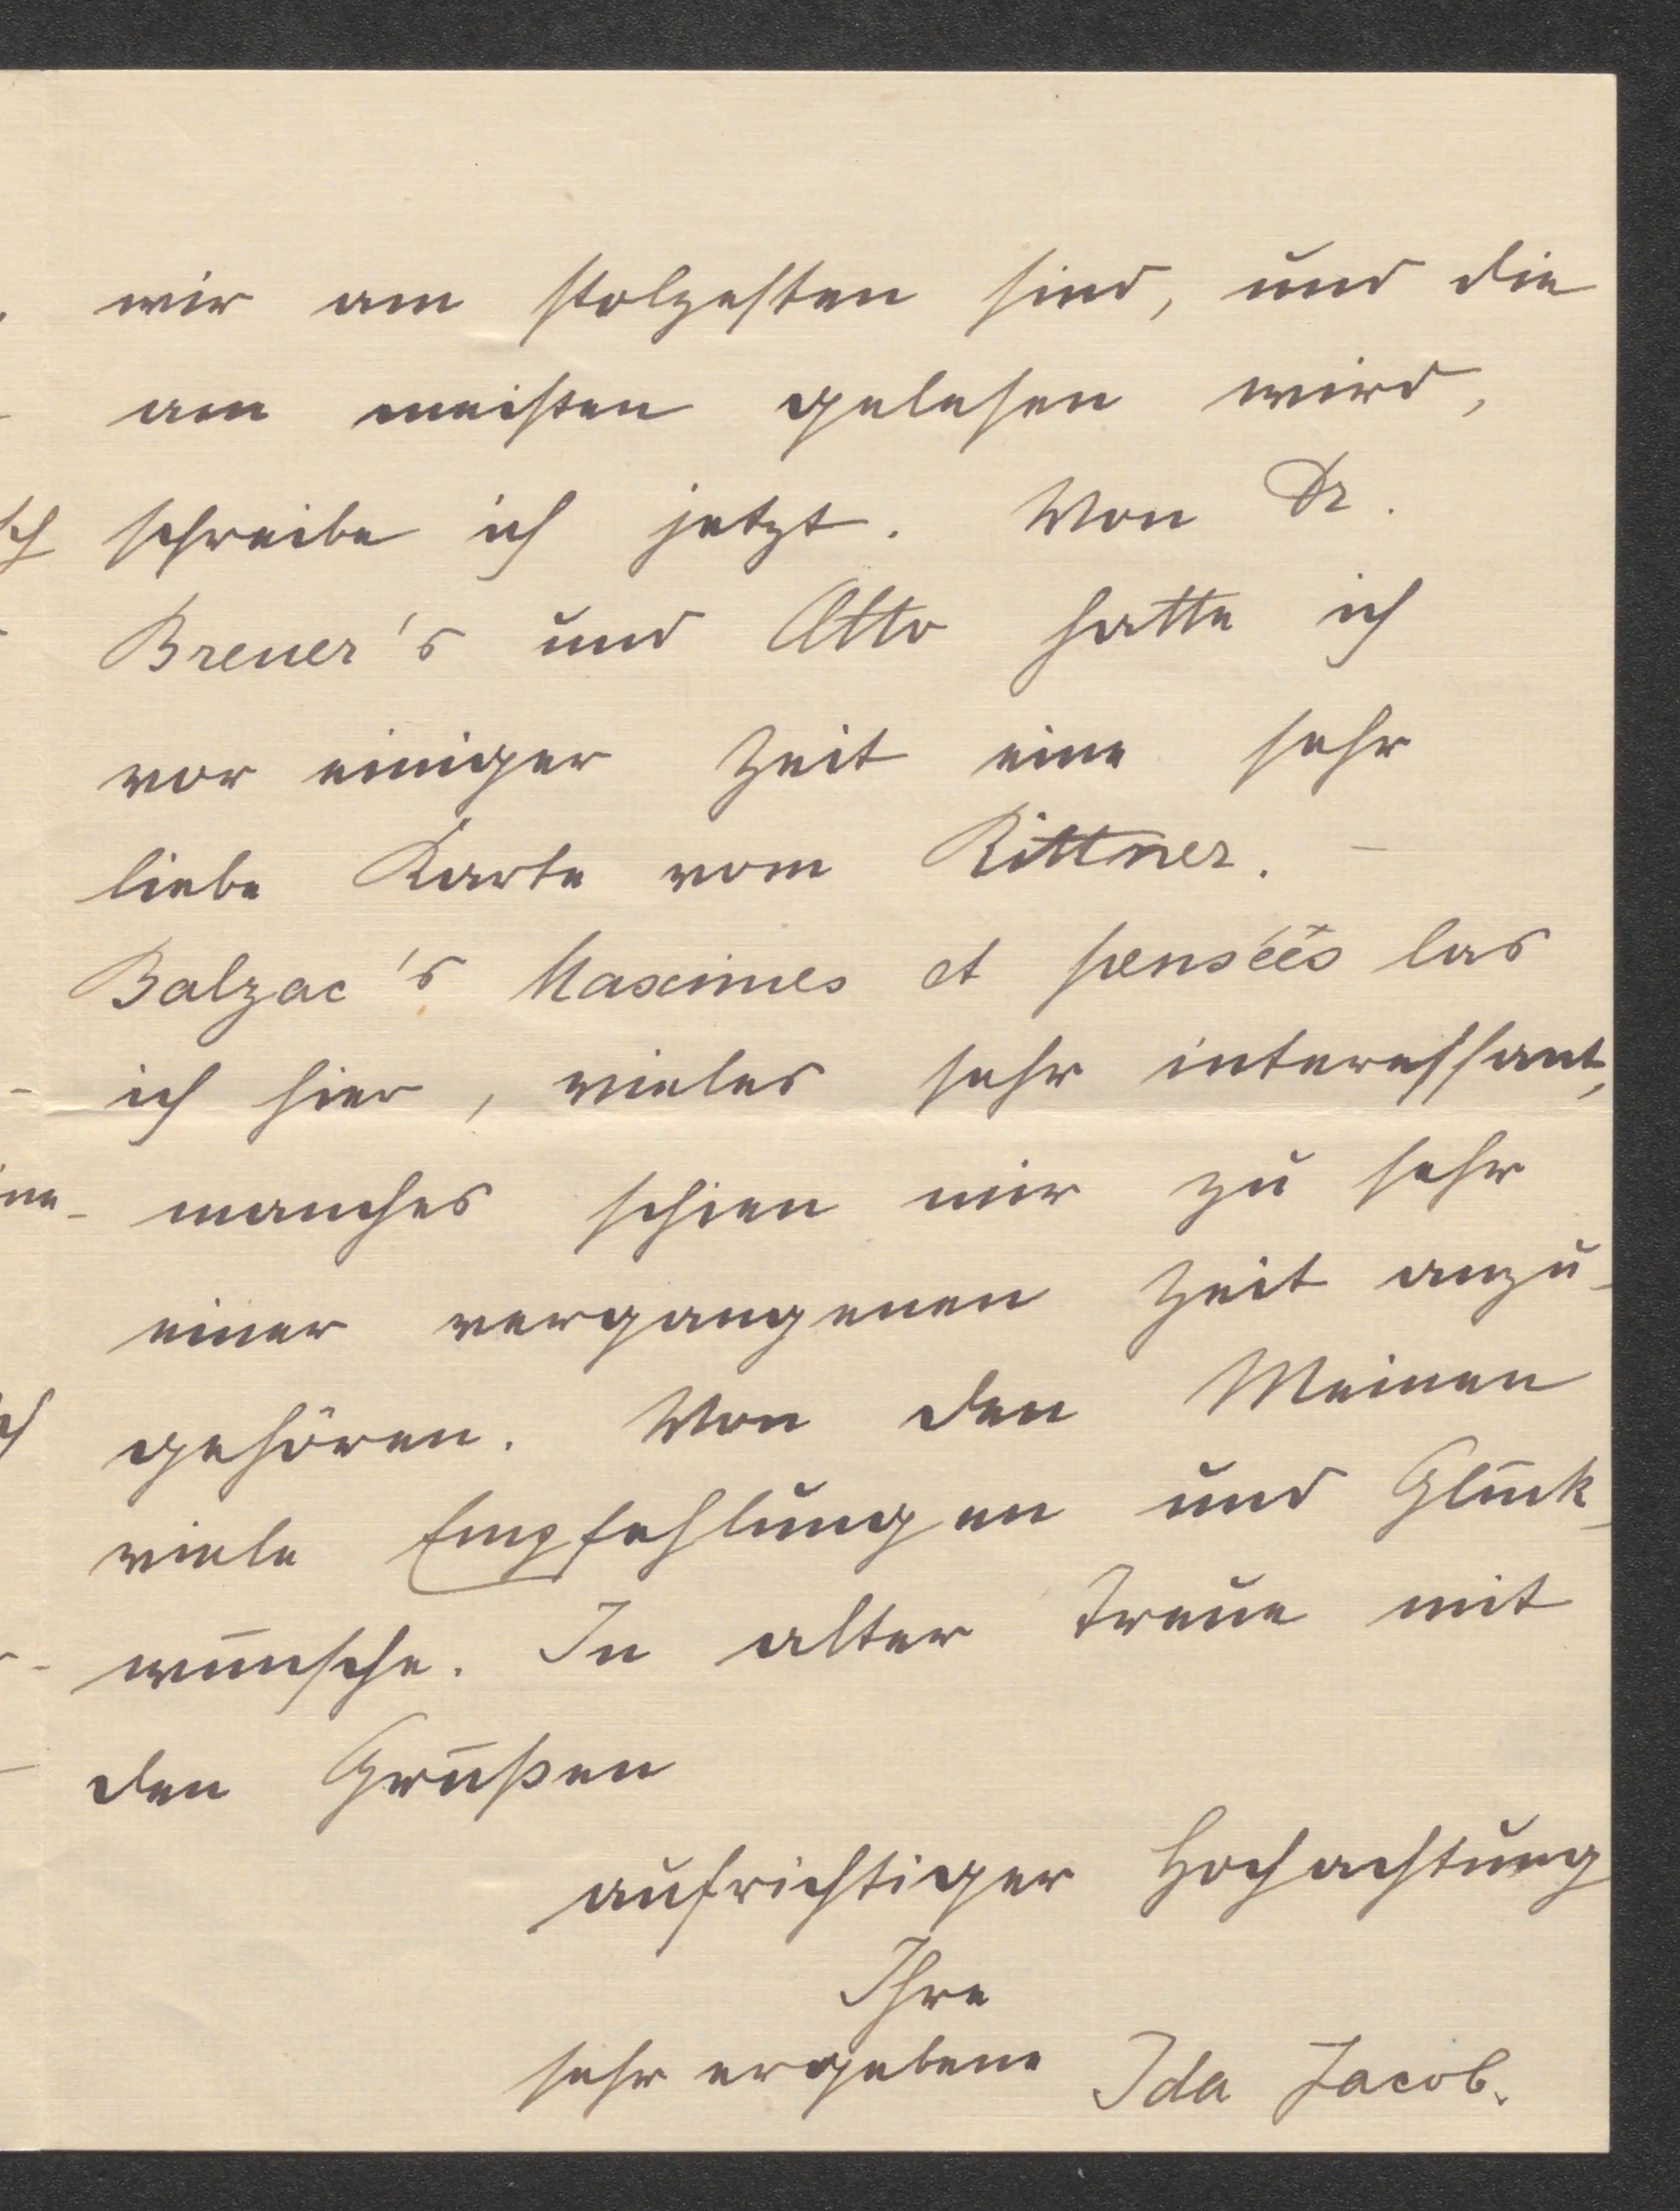 wir am stolzesten sind, und die
am meisten gelesen wird,
schreibe ich jetzt. Von Dr.
Breuer's und Otto hatte ich
vor einiger Zeit eine sehr
liebe Karte vom Rittner. –
Balzac's Maximes et pensées las
ich hier, vieles sehr interessant,
manches schien mir zu sehr
einer vergangenen Zeit anzu-
gehören. Von den Meinen
viele Empfehlungen und Glück-
wünsche. In alter Treue mit
den Grüßen
aufrichtiger Hochachtung
Ihre
sehr ergebene Ida Jacob.